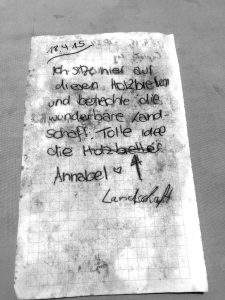 18.4.15
Ich sitze hier auf
diesen Holzbrettern
und betrachte die
wunderbare Land-
schaft. Tolle Idee
die Holzbretter
Annabel ♡
Landschaft